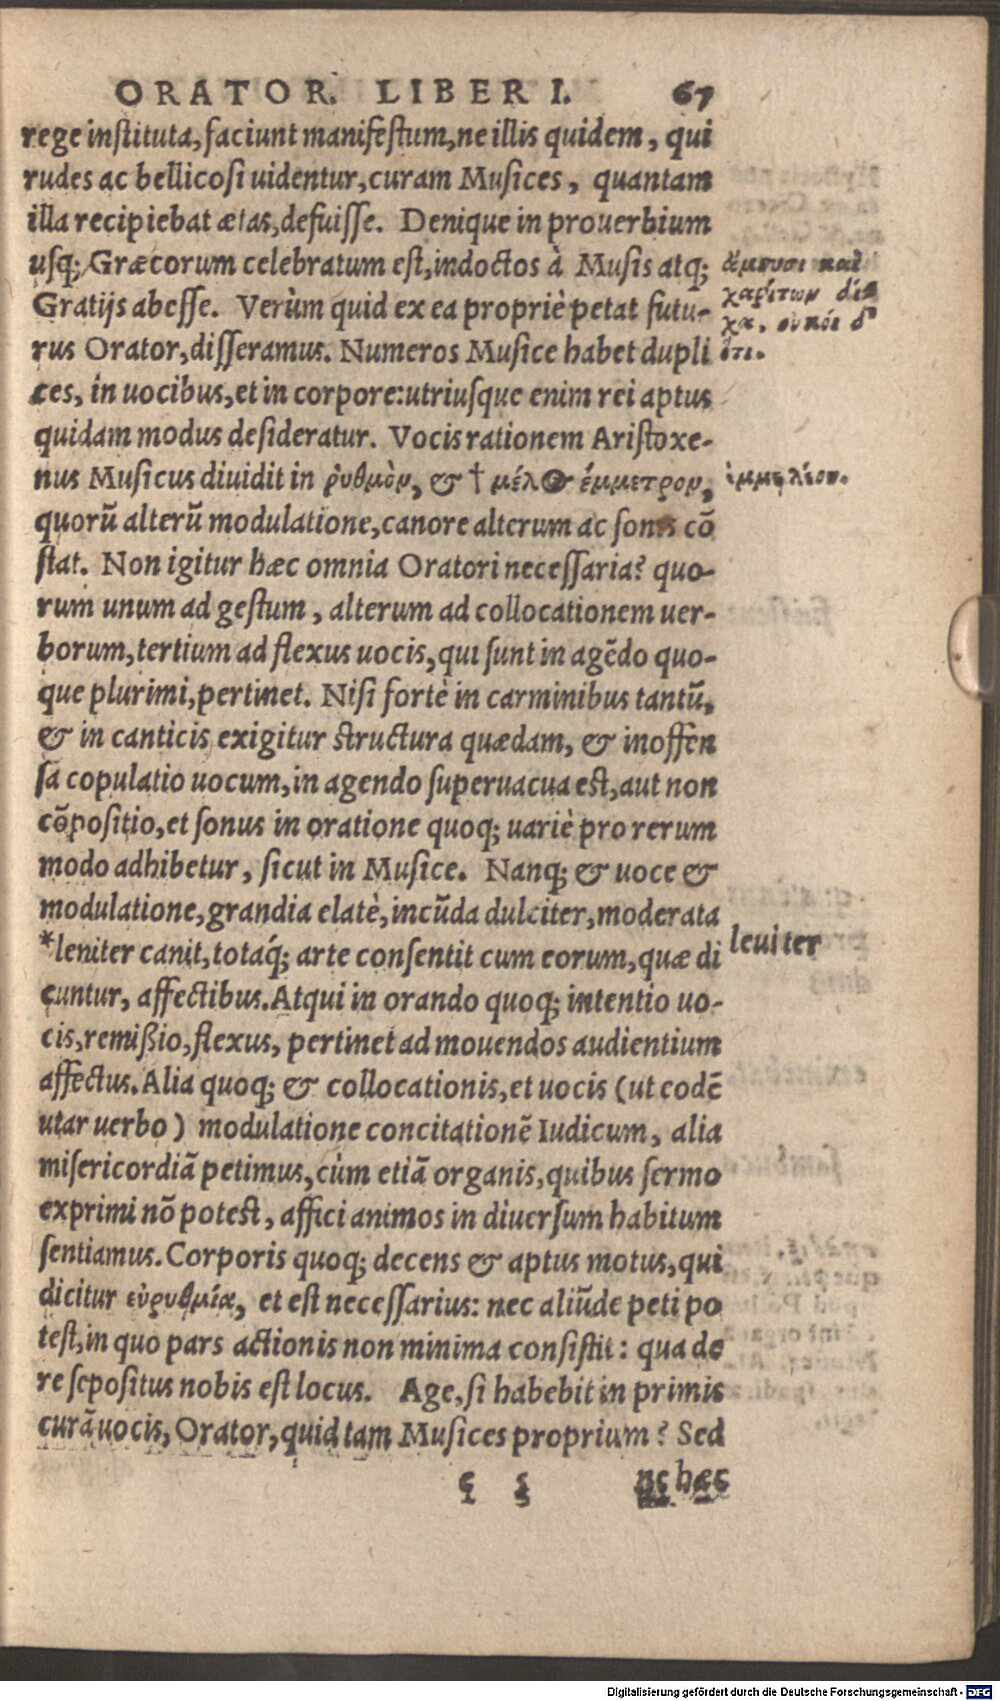 ORATOR. LIBER I. 67
rege instituta, faciunt manifestum, ne illis quidem, qui
rudes ac bellicosi uidentur, curam Musices, quantam
illa recipiebat ætas, defuisse. Denique in prouerbium
usq; Græcorum celebratum est, indoctos à Musis atq;
Gratijs abesse. Verùm quid ex ea propriè petat futu-
rus Orator, disseramus. Numeros Musice habet dupli
ces, in uocibus, et in corpore: utriusque enim rei aptus
quidam modus desideratur. Vocis rationem Aristoxe-
nus Musicus diuidit in ῥυθμὸν, & † μέλος ἔμμετρον,
quorũ alterũ modulatione, canore alterum ac sonis cõ
stat. Non igitur hæc omnia Oratori necessaria? quo-
rum unum ad gestum, alterum ad collocationem uer-
borum, tertium ad flexus uocis, qui sunt in agẽdo quo-
que plurimi, pertinet. Nisi fortè in carminibus tantũ,
& in canticis exigitur structura quædam, & inoffen
sa copulatio uocum, in agendo superuacua est, aut non
cõpositio, et sonus in oratione quoq; uariè pro rerum
modo adhibetur, sicut in Musice. Nanq; & uoce &
modulatione, grandia elatè, iucũda dulciter, moderata
*leniter canit, totaq́; arte consentit cum eorum, quæ di
cuntur, affectibus. Atqui in orando quoq; intentio uo-
cis, remißio, flexus, pertinet ad mouendos audientium
affectus. Alia quoq; & collocationis, et uocis (ut eodẽ
utar uerbo) modulatione concitationẽ Iudicum, alia
misericordiã petimus, cùm etiã organis, quibus sermo
exprimi nõ potest, affici animos in diuersum habitum
sentiamus. Corporis quoq; decens & aptus motus, qui
dicitur εὐρυθμία, et est necessarius: nec aliũde peti po
test, in quo pars actionis non minima consistit: qua de
re sepositus nobis est locus. Age, si habebit in primis
curã uocis, Orator, quid tam Musices proprium? Sed
ne hæc
χαρίτων
ἐμμελέσον.
leuiter
Digitalisierung gefördert durch die Deutsche Forschungsgemeinschaft - DFG